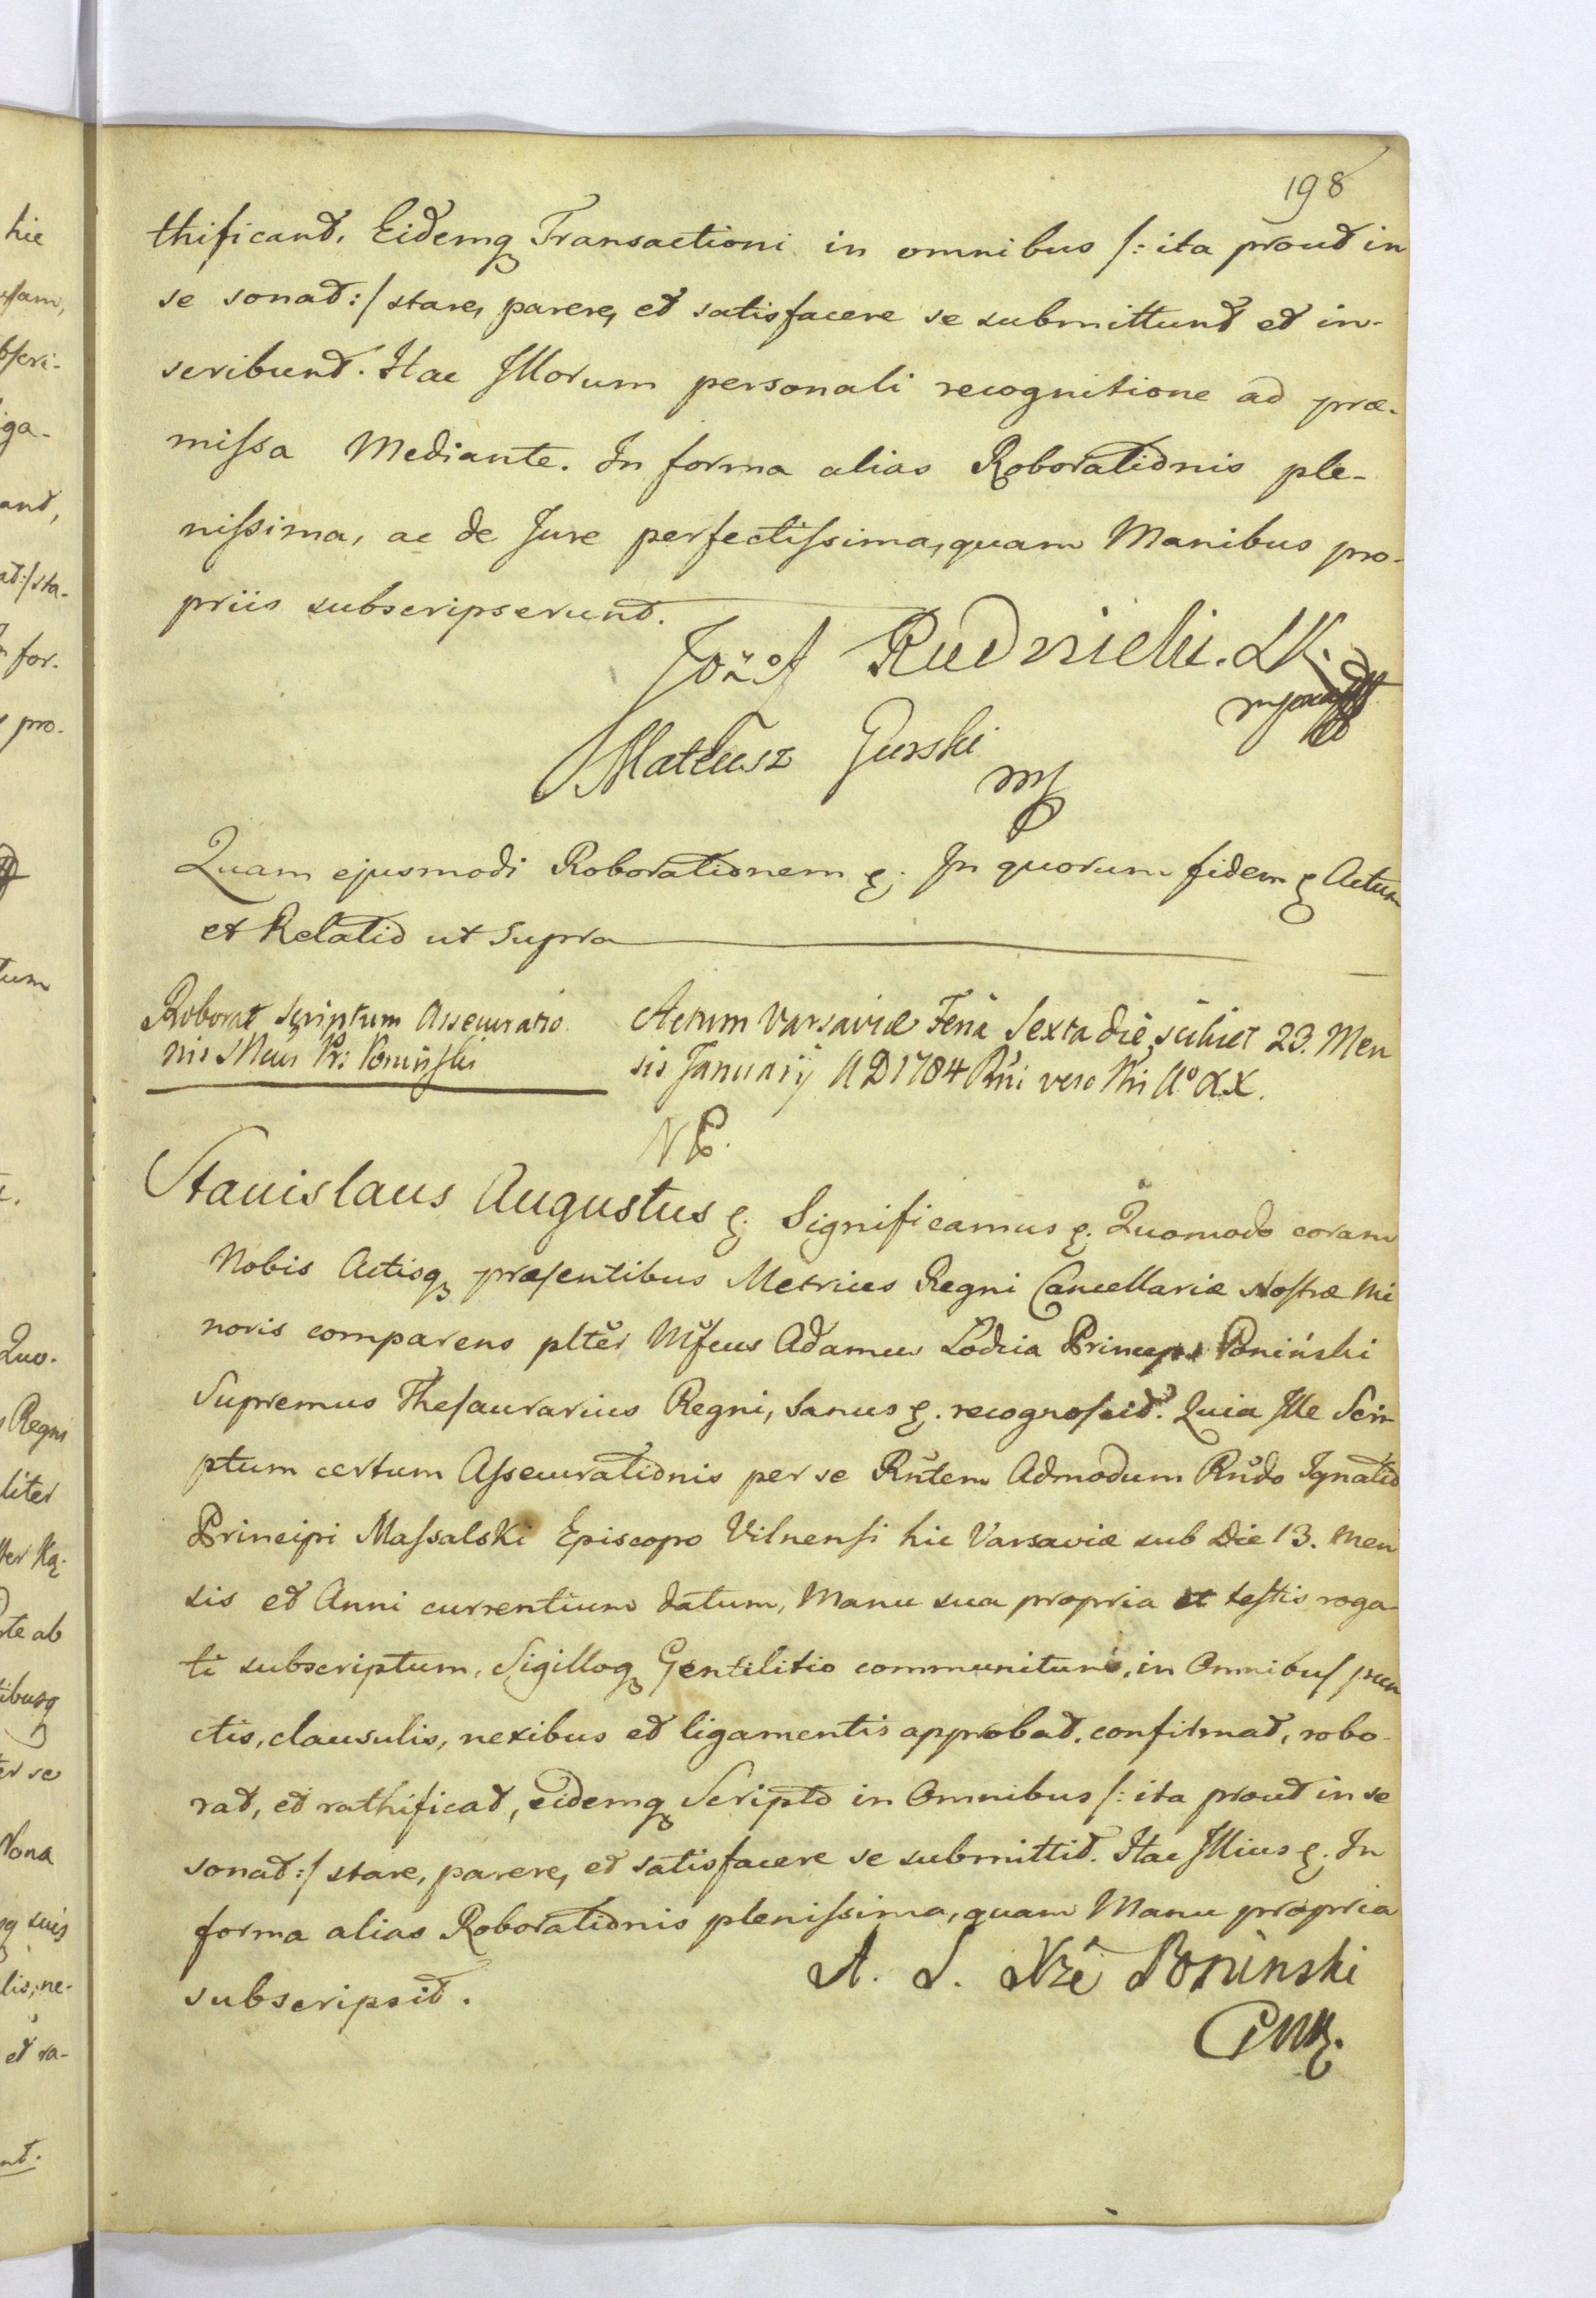 198
thificant. Eidemq Transactioni in omnibus /: ita prout in
se sonat :/ stare, parere, et satisfacere se submittunt et in-
scribunt. Hac Illorum personali recognitione ad præ-
missa Mediante. In forma alias Roborationis ple-
nissima, ac de Jure perfectissima, quam Manibus pro-
priis subscripserunt.
Jozef Rudnicki. LK.
Mateusz Gurski
mp
Quam ejusmodi Roborationem &. In quorum fidem & Actum
et Relatio ut Supra
Roborat Scriptum Assecuratio
nis Pr: Poniński
Actum Varsaviæ Feria Sexta die scilicet 23. Men
sis Januarij AD 1784 Rni vero Nri Aº XX.
NP.
Stanislaus Augustus &. Significamus &. Quomodo coram
Nobis Actisq præsentibus Metrices Regni Cancellariæ Nostræ Mi
noris comparens plter Mfcus Adamus Lodzia Princeps Poniński
Supremus Thesaurarius Regni, Sanus &. recognoscit. Quia Ille Scri
ptum certum Assecurationis per se Rntem Admodum Rndo Ignatio
Principi Massalski Episcopo Vilnensi hic Varsaviæ sub Die 13. Men
sis et Anni currentium datum, Manu sua propria et testis roga
ti subscriptum, Sigilloq Gentilitio communitum, in Omnibus pun
ctis, clausulis, nexibus et ligamentis approbat, confirmat, robo-
rat, et rathificat, eidemq Scripto in Omnibus /: ita prout in se
sonat :/ stare, parere, et satisfacere se submittit. Hac Illius &. In
forma alias Roborationis plenissima, quam Manu propria
subscripsit.
A. L. Xże Poninski